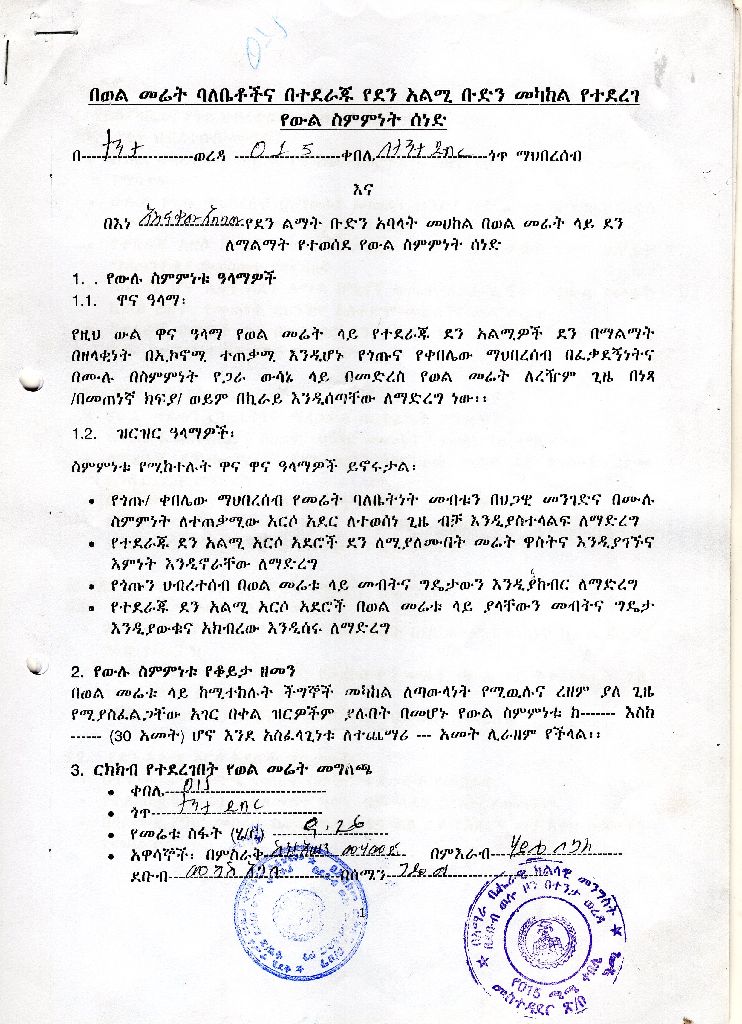 015
በወል መሬት ባለቤቶችና በተደራጁ የደን አልሚ ቡድን መካከል የተደረገ
የውል ስምምነት ሰነድ
በ---ተንታ---ወረዳ ---015---ቀበሌ---ጎጥ ማህበረሰብ
እና
በእነ የደን ልማት ቡድን አባላት መሀከል በወል መሬት ላይ ደን
ለማልማት የተወሰደ የውል ስምምነት ሰነድ
1. . የውሉ ስምምነቱ ዓላማዎች
1.1. ዋና ዓላማ፡
የዚህ ውል ዋና ዓላማ የወል መሬት ላይ የተደራጁ ደን አልሚዎች ደን በማልማት
በዘላቂነት በኢኮኖሚ ተጠቃሚ እንዲሆኑ የጎጡና የቀበሌው ማህበረሰብ በፈቃደኝነትና
በሙሉ በስምምነት የጋራ ውሳኔ ላይ በመድረስ የወል መሬት ለረዥም ጊዜ በነጻ
/በመጠነኛ ክፍያ/ ወይም በኪራይ እንዲሰጣቸው ለማድረግ ነው፡፡
1.2. ዝርዝር ዓላማዎች፡
ስምምነቱ የሚከተሉት ዋና ዋና ዓላማዎች ይኖሩታል፡
• የጎጡ/ ቀበሌው ማህበረሰብ የመሬት ባለቤትነት መብቱን በህጋዊ መንገድና በሙሉ
ስምምነት ለተጠቃሚው አርሶ አደር ለተወሰነ ጊዜ ብቻ እንዲያስተላልፍ ለማድረግ
• የተደራጁ ደን አልሚ አርሶ አደሮች ደን ለሚያለሙበት መሬት ዋስትና እንዲያገኙና
እምነት እንዲኖራቸው ለማድረግ
• የጎጡን ህብረተሰብ በወል መሬቱ ላይ መብትና ግዴታውን እንዲያከብር ለማድረግ
• የተደራጁ ደን አልሚ አርሶ አደሮች በወል መሬቱ ላይ ያላቸውን መብትና ግዴታ
እንዲያውቁና አክብረው እንዲሰሩ ለማድረግ
2. የውሉ ስምምነቱ የቆይታ ዘመን
በወል መሬቱ ላይ ከሚተከሉት ችግኞች መካከል ለጣውላነት የሚዉሉና ረዘም ያለ ጊዜ
የሚያስፈልጋቸው አገር በቀል ዝርዎችም ያሉበት በመሆኑ የውል ስምምነቱ ከ------- እስከ
------ (30 አመት) ሆኖ እንደ አስፈላጊነቱ ለተጨማሪ --- አመት ሊራዘም የችላል፡፡
3. ርክክብ የተደረገበት የወል መሬት መግለጫ
• ቀበሌ---015---
• ጎጥ---ተንታ ደብር---
• የመሬቱ ስፋት (ሄ/ር) ---
• አዋሳኞች፡ በምስራቅ--- በምእራብ---
ደቡብ--- በሰሜን---
1
በአማራ ብሔራዊ ክልላዊ መንግስት
በደቡብ ወሎ ዞን በተንታ ወረዳ
የ015 ቀበሌ
መስተዳደር ጽ/ቤ